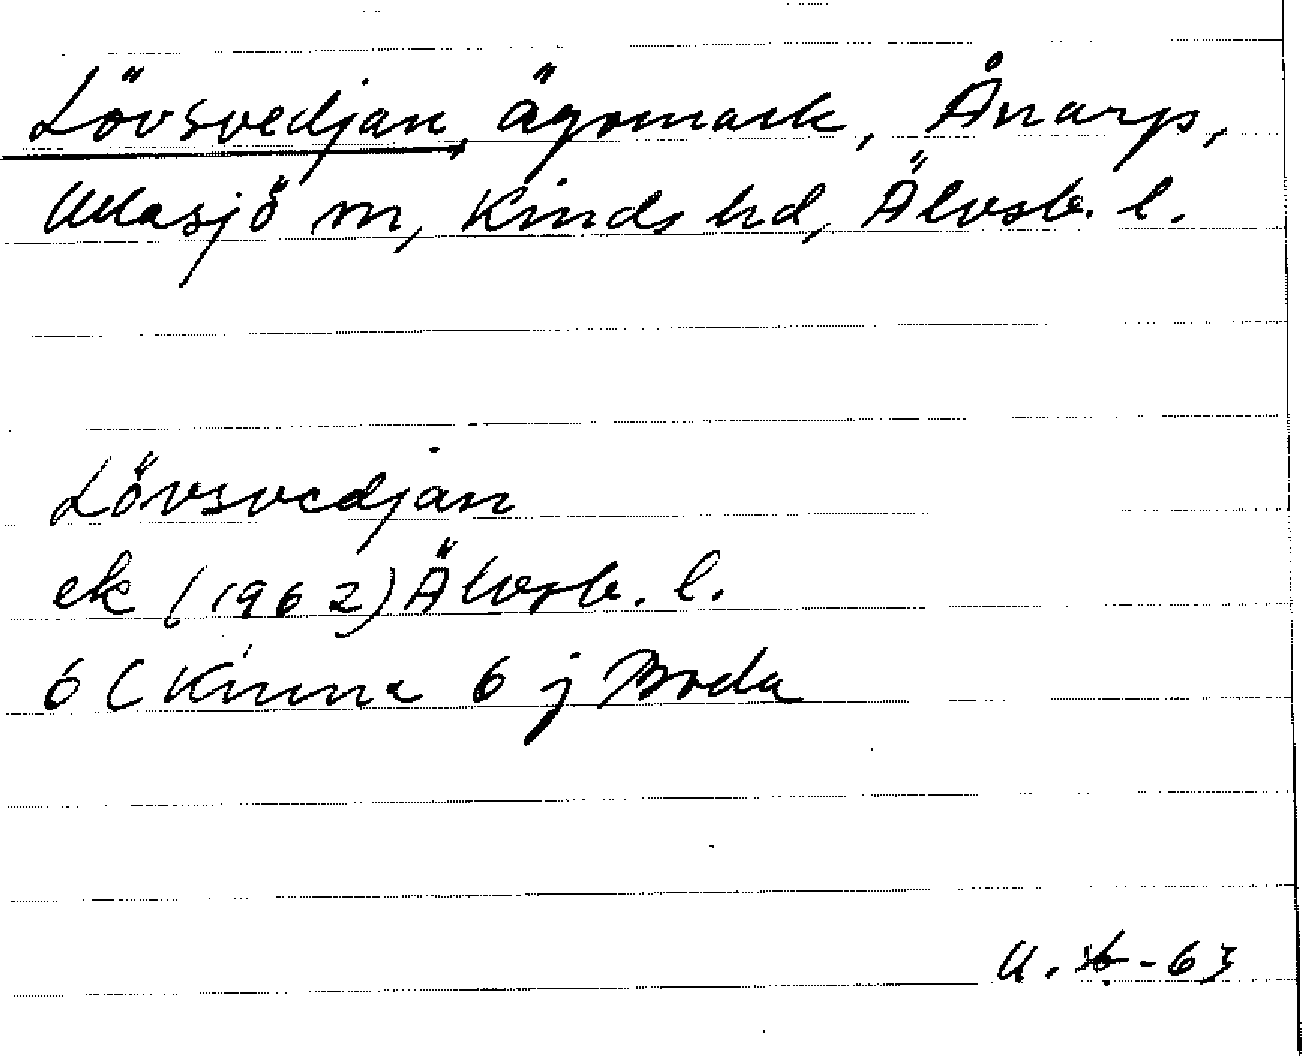 Lövsvedjan, ägomark, Ånarp,
Ullasjö sn, Kinds hd, Älvsb. l.
Lövsvedjan
ek (1962) Älvsb. l.
6 C Kinna 6 j Boda